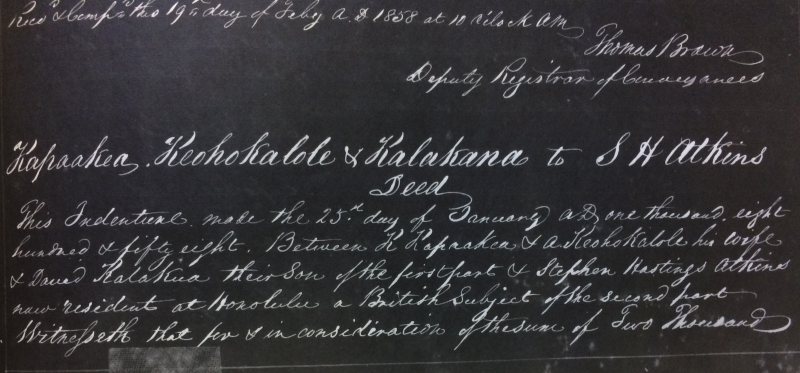 Recd & Compd this 19th day of Feby A.D 1858 at 10 o'clock AM
Thomas Brown
Deputy Registrar of Conveyances
Kapaakea, Keohokalole & Kalakana to S H Atkins
Deed
This Indenture made the 25th day of January AD one thousand eight
hundred & fifty eight. Between K Kapaakea & A Keohokalole his wife
& David Kalakua their Son of the first part & Stephen Hastings Atkins
now resident at Honolulu a British Subject of the second part
Witnesseth that for & in consideration of the sum of Two Thousand